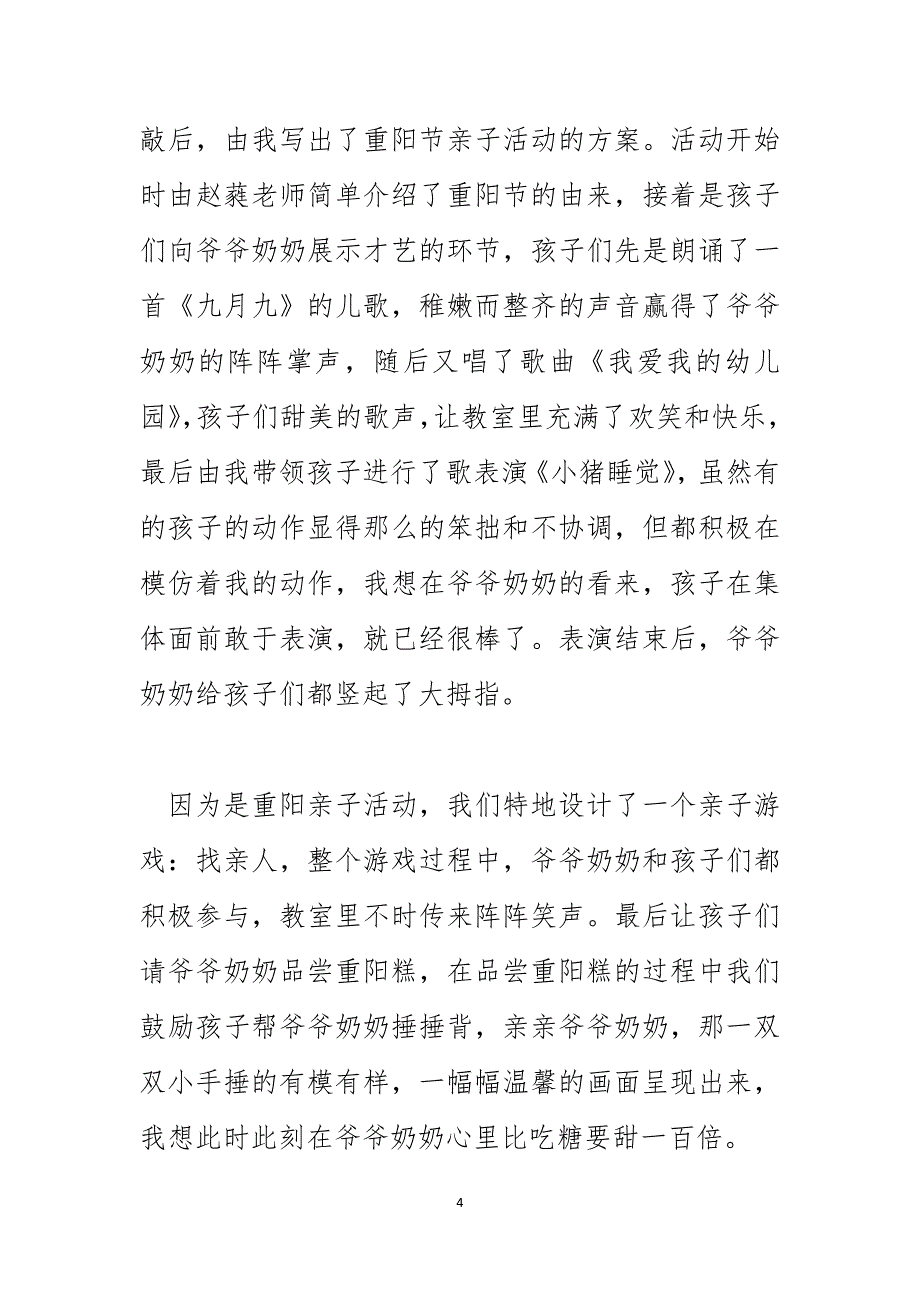 敲后，由我写出了重阳节亲子活动的方案。活动开始
时由赵蕤老师简单介绍了重阳节的由来，接着是孩子
们向爷爷奶奶展示才艺的环节，孩子们先是朗诵了一
首《九月九》的儿歌，稚嫩而整齐的声音赢得了爷爷
奶奶的阵阵掌声，随后又唱了歌曲《我爱我的幼儿
园》，孩子们甜美的歌声，让教室里充满了欢笑和快乐，
最后由我带领孩子进行了歌表演《小猪睡觉》，虽然有
的孩子的动作显得那么的笨拙和不协调，但都积极在
模仿着我的动作，我想在爷爷奶奶的看来，孩子在集
体面前敢于表演，就已经很棒了。表演结束后，爷爷
奶奶给孩子们都竖起了大拇指。
因为是重阳亲子活动，我们特地设计了一个亲子游
戏：找亲人，整个游戏过程中，爷爷奶奶和孩子们都
积极参与，教室里不时传来阵阵笑声。最后让孩子们
请爷爷奶奶品尝重阳糕，在品尝重阳糕的过程中我们
鼓励孩子帮爷爷奶奶捶捶背，亲亲爷爷奶奶，那一双
双小手捶的有模有样，一幅幅温馨的画面呈现出来，
我想此时此刻在爷爷奶奶心里比吃糖要甜一百倍。
4